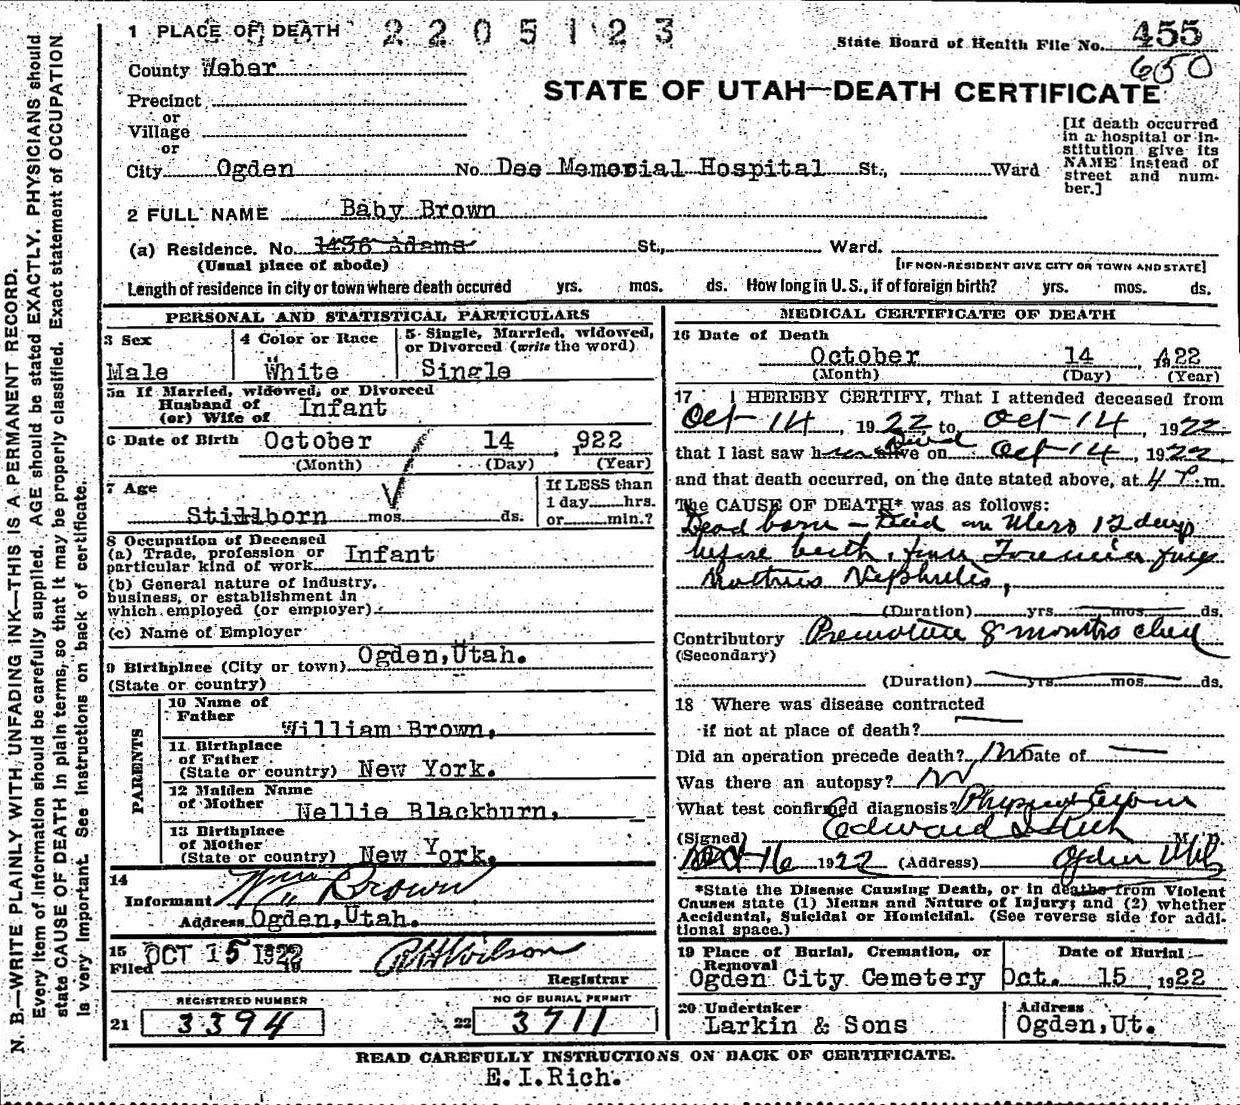 1 PLACE OF DEATH 2205123
State Board of Health File No. 455
650
County Weber
STATE OF UTAH—DEATH CERTIFICATE
Precinct
or
Village
or
City Ogden No. Dee Memorial Hospital St., Ward
[If death occurred
in a hospital or in-
stitution give its
NAME instead of
street and num-
ber.]
2 FULL NAME Baby Brown
(a) Residence. No. 1436 Adams St., Ward.
(Usual place of abode) [IF NON-RESIDENT GIVE CITY OR TOWN AND STATE]
Length of residence in city or town where death occured yrs. mos. ds. How long in U. S., if of foreign birth? yrs. mos. ds.
N. B.—WRITE PLAINLY WITH UNFADING INK—THIS IS A PERMANENT RECORD.
Every item of information should be carefully supplied. AGE should be stated EXACTLY. PHYSICIANS should
state CAUSE OF DEATH in plain terms, so that it may be properly classified. Exact statement of OCCUPATION
is very important. See instructions on back of certificate.
PERSONAL AND STATISTICAL PARTICULARS
3 Sex
Male
4 Color or Race
White
5 Single, Married, widowed,
or Divorced (write the word)
Single
5a If Married, widowed, or Divorced
Husband of
(or) Wife of Infant
6 Date of Birth October 14, 922
(Month) (Day) (Year)
7 Age
Stillborn mos. ds.
If LESS than
1 day hrs.
or min.?
8 Occupation of Deceased
(a) Trade, profession or
particular kind of work Infant
(b) General nature of Industry,
business, or establishment in
which employed (or employer)
(c) Name of Employer
9 Birthplace (City or town) Ogden, Utah.
(State or country)
PARENTS
10 Name of
Father William Brown,
11 Birthplace
of Father
(State or country) New York.
12 Maiden Name
of Mother Nellie Blackburn,
13 Birthplace
of Mother
(State or country) New York,
14
Informant Wm Brown
Address Ogden, Utah.
15 OCT 15 1922
Filed 19
Registrar
REGISTERED NUMBER
21 3394
NO OF BURIAL PERMIT
22 3711
MEDICAL CERTIFICATE OF DEATH
16 Date of Death
October 14 1922
(Month) (Day) (Year)
17 I HEREBY CERTIFY, That I attended deceased from
Oct-14, 1922 to Oct-14, 1922
that I last saw h alive on Oct-14, 1922,
and that death occurred, on the date stated above, at 4 P. m.
The CAUSE OF DEATH* was as follows:
Dead born — Died in Utero 12 days
before birth, from
Mothers Nephritis,
(Duration) yrs. mos. ds.
Contributory Premature 8 months child
(Secondary)
(Duration) yrs. mos. ds.
18 Where was disease contracted
if not at place of death?
Did an operation precede death? no Date of
Was there an autopsy? no
What test confirmed diagnosis? Physical Exam
(Signed) Edward I Rich M. D.
Oct 16 1922 (Address) Ogden Utah
*State the Disease Causing Death, or in deaths from Violent
Causes state (1) Means and Nature of Injury; and (2) whether
Accidental, Suicidal or Homicidal. (See reverse side for addi-
tional space.)
19 Place of Burial, Cremation, or
Removal
Ogden City Cemetery
Date of Burial
Oct. 15 1922
20 Undertaker
Larkin & Sons
Address
Ogden, Ut.
READ CAREFULLY INSTRUCTIONS ON BACK OF CERTIFICATE.
E.I.Rich.